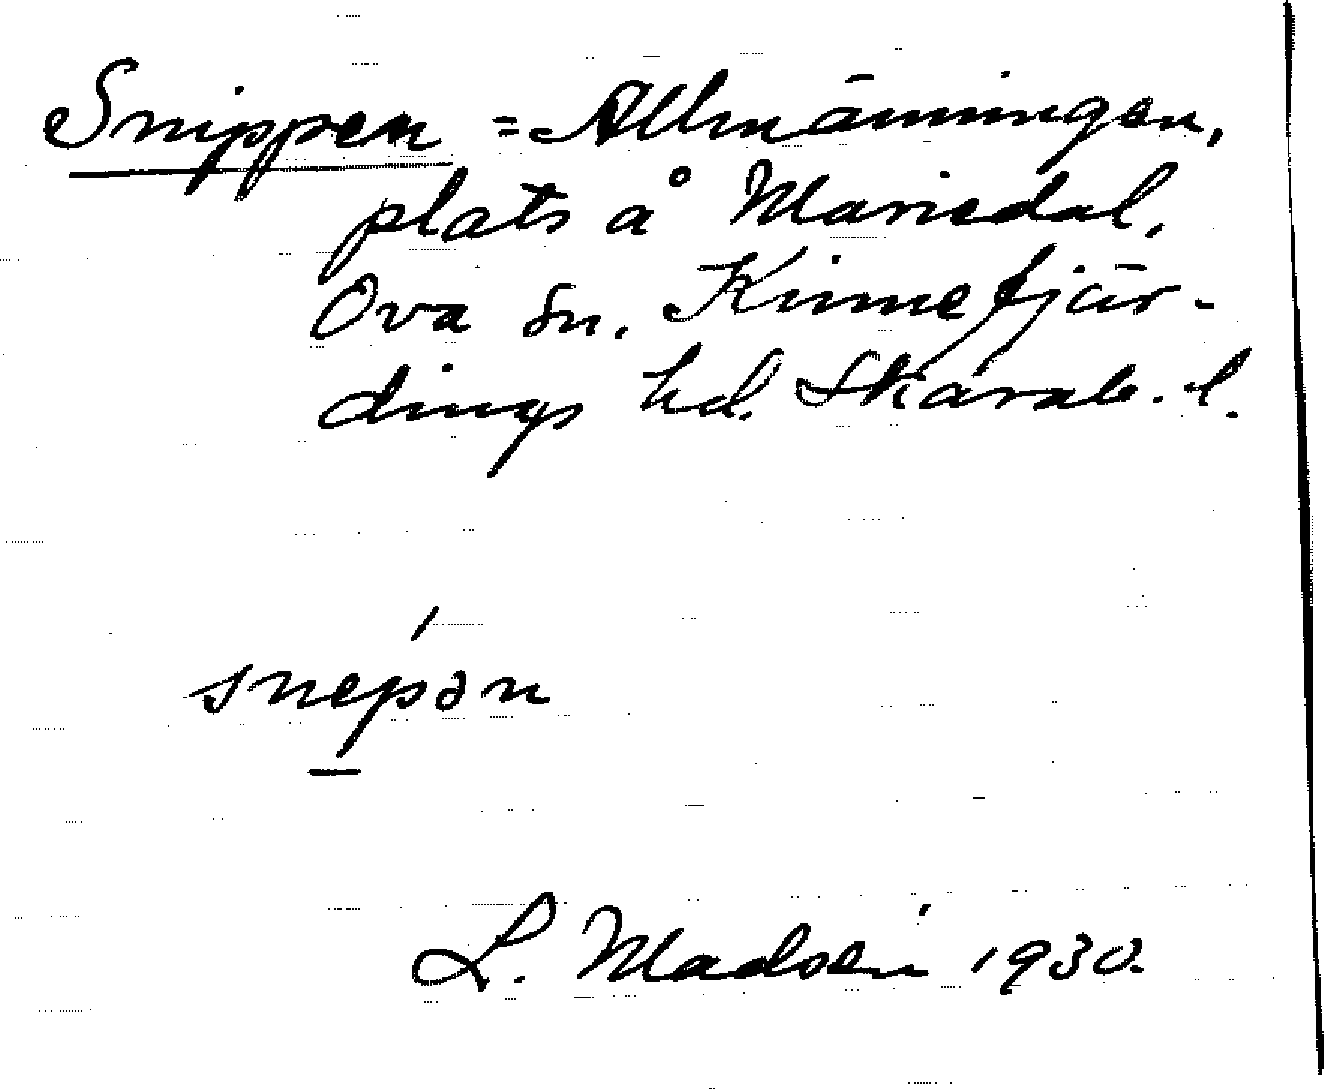 Snippen = Allmänningen,
plats å Mariedal,
Ova sn. Kinnefjär-
dings hd. Skarab. l.
snepən
L. Madsén 1930.